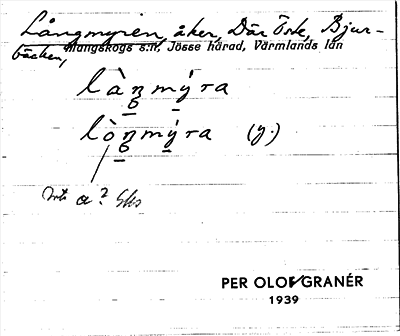 Långmyren, åker, Där Öste, Bjur-
bäcken,
Mangskogs s:n, Jösse härad, Värmlands län
làŋmýra
lòŋmýra (y.)
a?
PER OLOF GRANÉR
1939